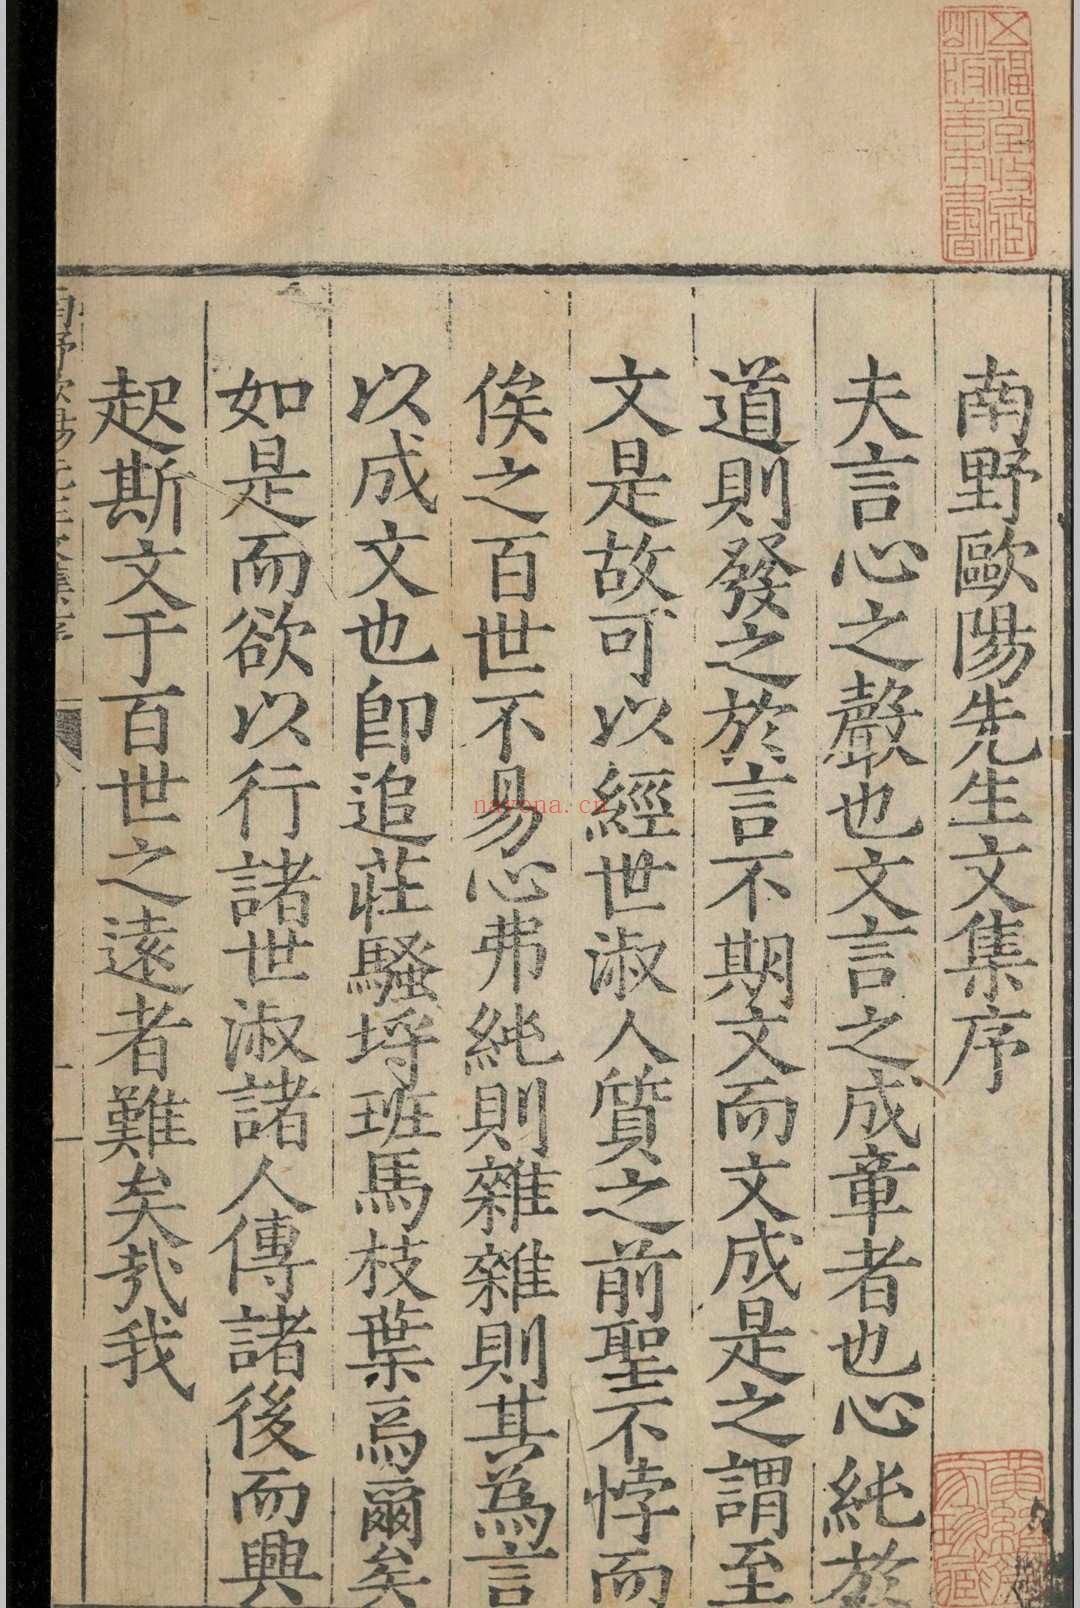 南野歐陽先生文集序
夫言心之聲也文言之成章者也心純於
道則發之於言不期文而文成是之謂至
文是故可以經世淑人質之前聖不悖而
俟之百世不易心弗純則雜雜則其為言
以成文也卽追莊騷埒班馬枝葉焉爾矣
如是而欲以行諸世淑諸人傳諸後而興
起斯文于百世之遠者難矣㢤我
五福堂收藏
明版善本書
nayona.cn